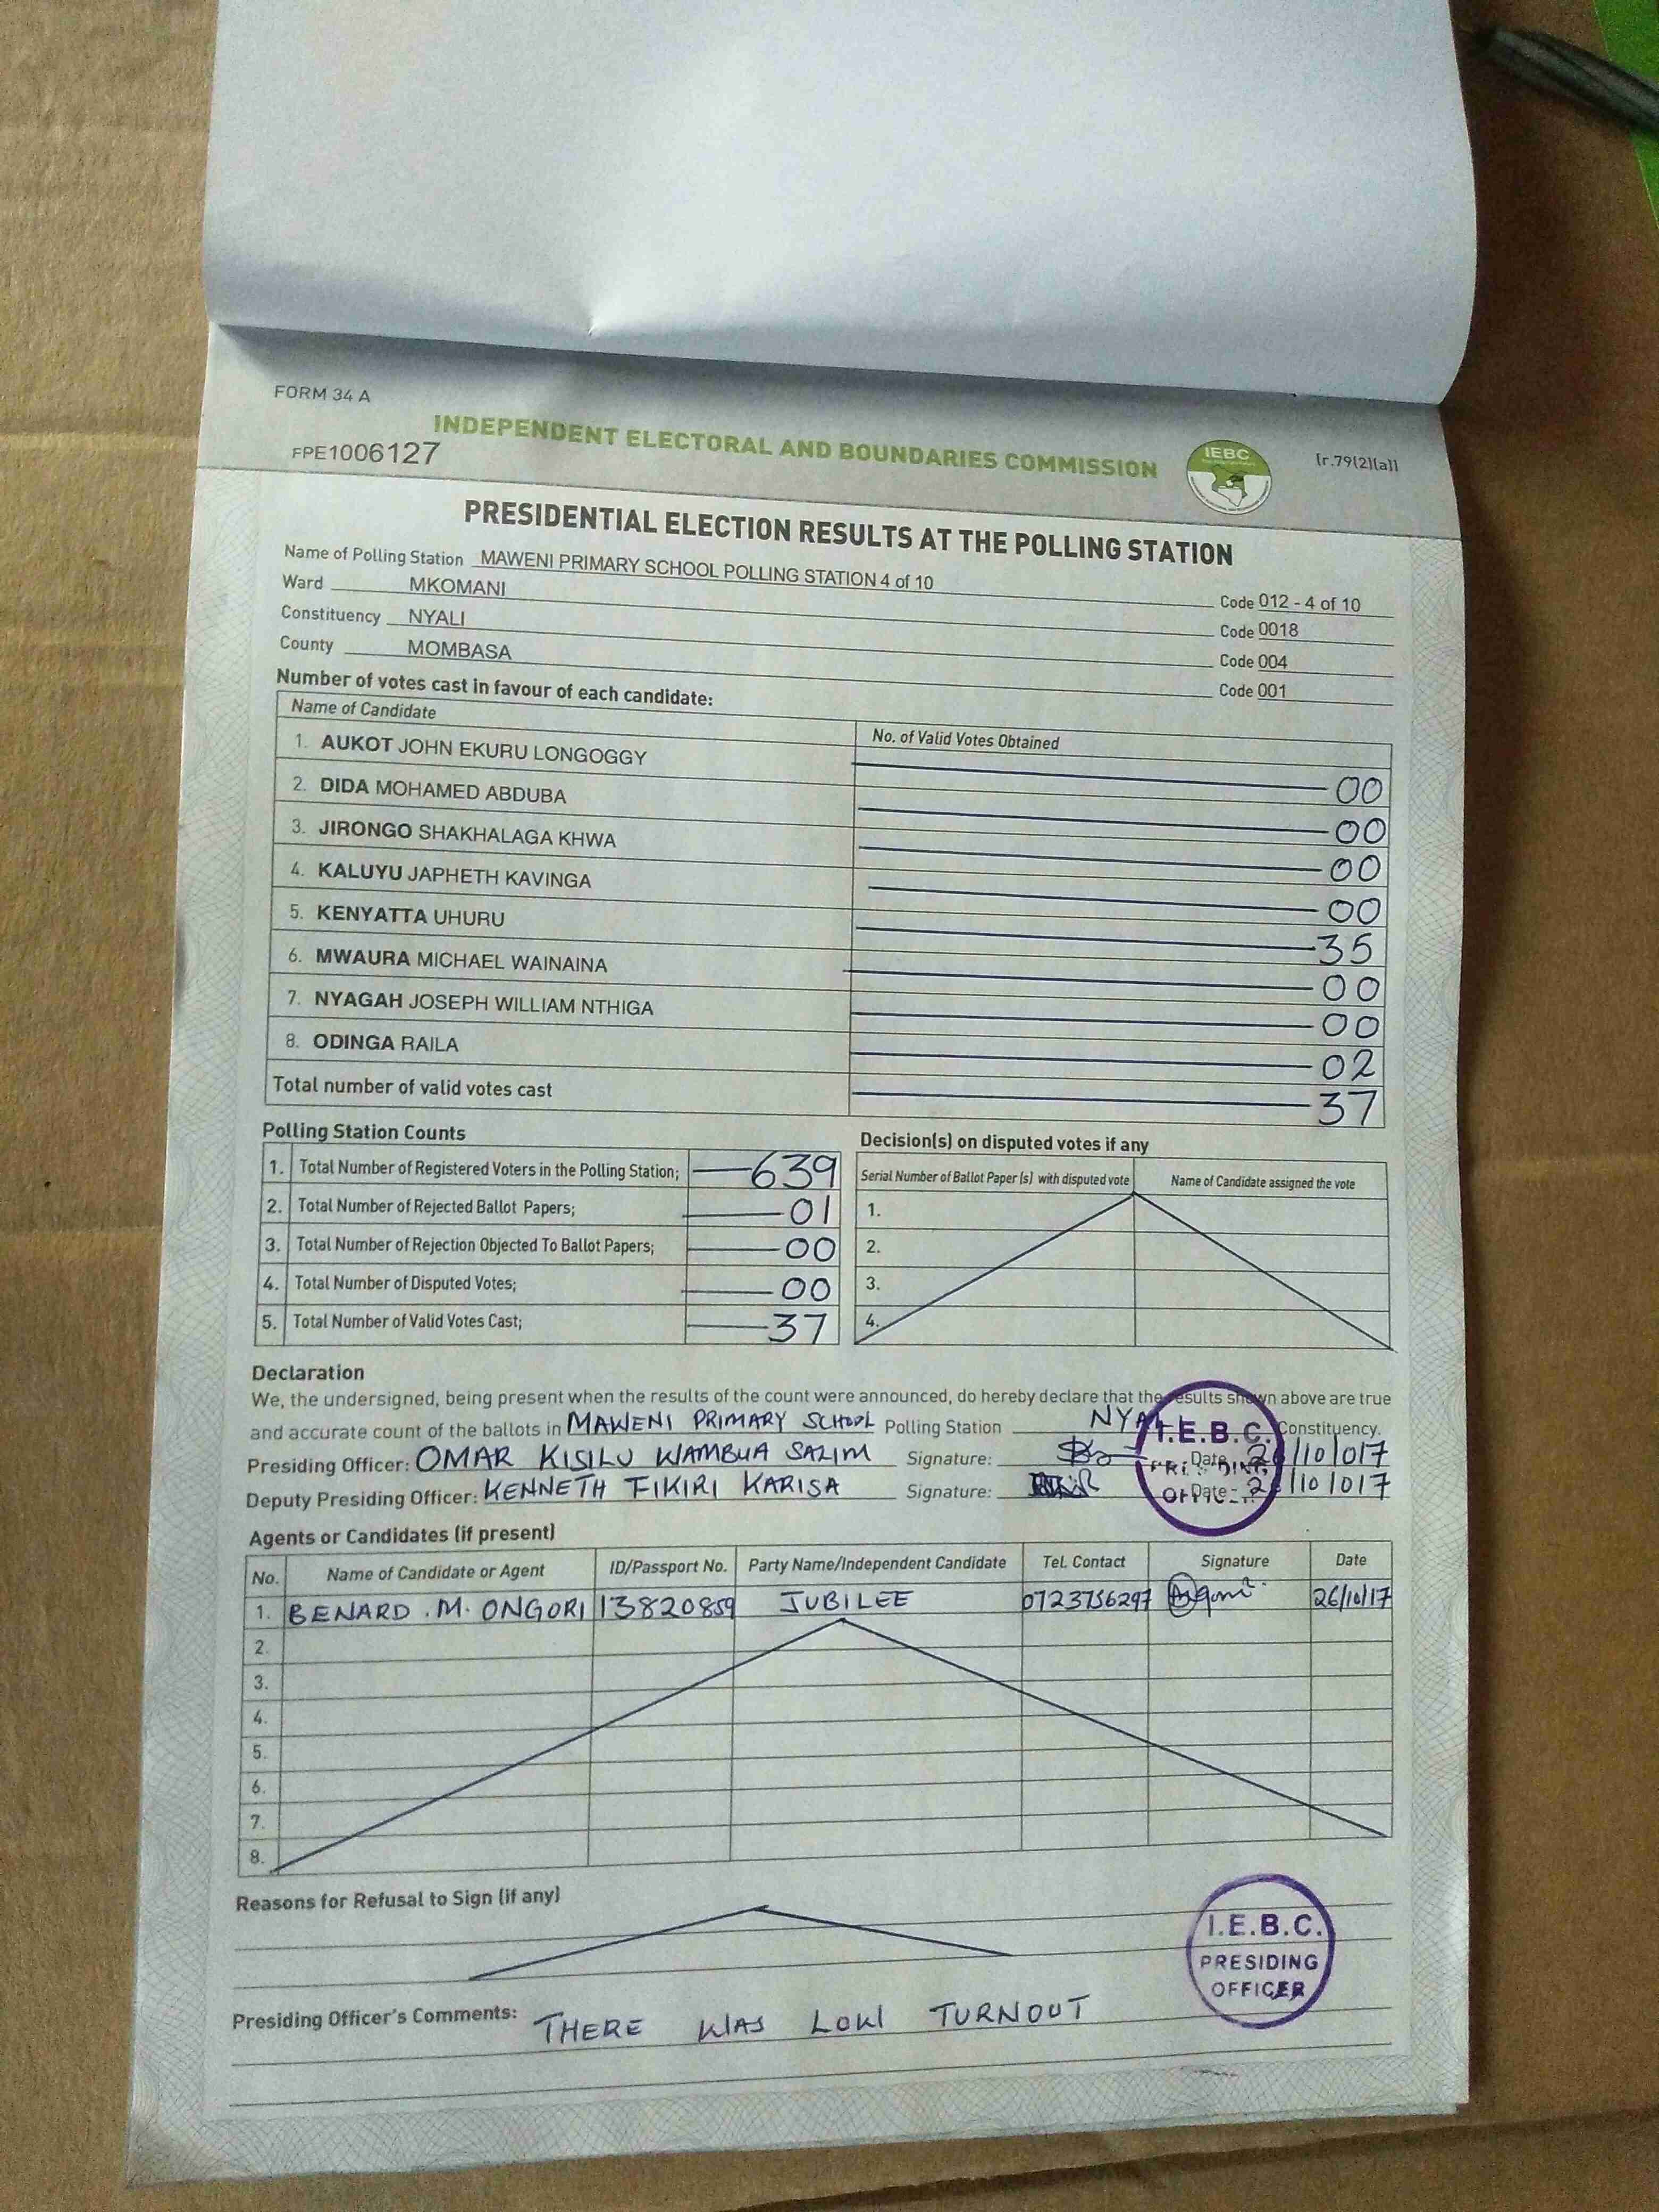 FORM 34 A
INDEPENDENT ELECTORAL AND BOUNDARIES COMMISSION
IEBC
[r.79(2)(a)]
FPE1006127
PRESIDENTIAL ELECTION RESULTS AT THE POLLING STATION
Name of Polling Station MAWENI PRIMARY SCHOOL POLLING STATION 4 of 10 Code 012 - 4 of 10
Ward MKOMANI Code 0018
Constituency NYALI Code 004
County MOMBASA Code 001
Number of votes cast in favour of each candidate:
Name of Candidate No. of Valid Votes Obtained
1. AUKOT JOHN EKURU LONGOGGY 00
2. DIDA MOHAMED ABDUBA 00
3. JIRONGO SHAKHALAGA KHWA 00
4. KALUYU JAPHETH KAVINGA 00
5. KENYATTA UHURU 35
6. MWAURA MICHAEL WAINAINA 00
7. NYAGAH JOSEPH WILLIAM NTHIGA 00
8. ODINGA RAILA 02
Total number of valid votes cast 37
Polling Station Counts
1. Total Number of Registered Voters in the Polling Station; 639
2. Total Number of Rejected Ballot Papers; 01
3. Total Number of Rejection Objected To Ballot Papers; 00
4. Total Number of Disputed Votes; 00
5. Total Number of Valid Votes Cast; 37
Decision(s) on disputed votes if any
Serial Number of Ballot Paper (s) with disputed vote Name of Candidate assigned the vote
1.
2.
3.
4.
Declaration
We, the undersigned, being present when the results of the count were announced, do hereby declare that the results shown above are true
and accurate count of the ballots in MAWENI PRIMARY SCHOOL Polling Station NYALI Constituency.
Presiding Officer: OMAR KISILU WAMBUA SALIM Signature: Date 26/10/017
Deputy Presiding Officer: KENNETH FIKIRI KARISA Signature: Date 26/10/017
I.E.B.C.
PRESIDING
OFFICER
Agents or Candidates (if present)
No. Name of Candidate or Agent ID/Passport No. Party Name/Independent Candidate Tel. Contact Signature Date
1. BENARD .M. ONGORI 13820859 JUBILEE 0723756297 26/10/17
2.
3.
4.
5.
6.
7.
8.
Reasons for Refusal to Sign (if any)
I.E.B.C.
PRESIDING
OFFICER
Presiding Officer's Comments: THERE WAS LOW TURNOUT